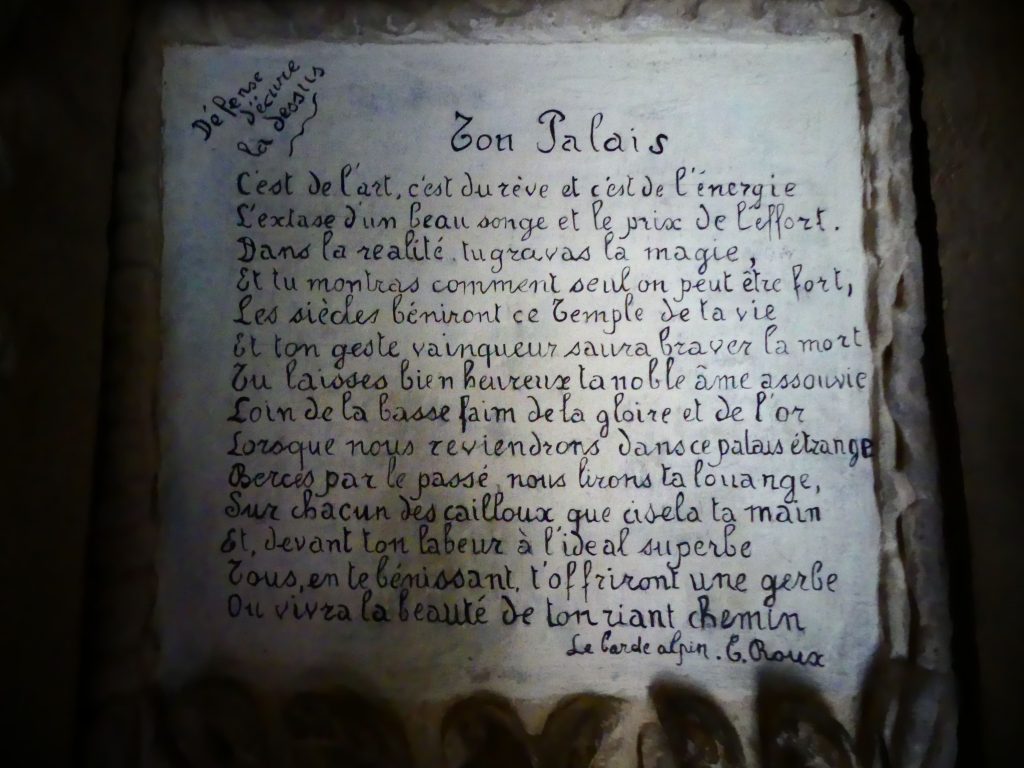 Défense
d'écrire
la dessus
Ton Palais
C'est de l'art, c'est du rêve et c'est de l'énergie
L'extase d'un beau songe et le prix de l'effort.
Dans la realité tu gravas la magie,
Et tu montras comment seul on peut être fort,
Les siècles béniront ce Temple de ta vie
Et ton geste vainqueur saura braver la mort
Tu laisses bien heureux ta noble âme assouvie
Loin de la basse faim de la gloire et de l'or
Lorsque nous reviendrons dans ce palais étrange
Berces par le passé, nous lirons ta louange,
Sur chacun des cailloux que cisela ta main
Et, devant ton labeur à l'ideal superbe
Tous, en te bénissant, t'offriront une gerbe
Ou vivra la beauté de ton riant chemin
Le Barde alpin. E. Roux